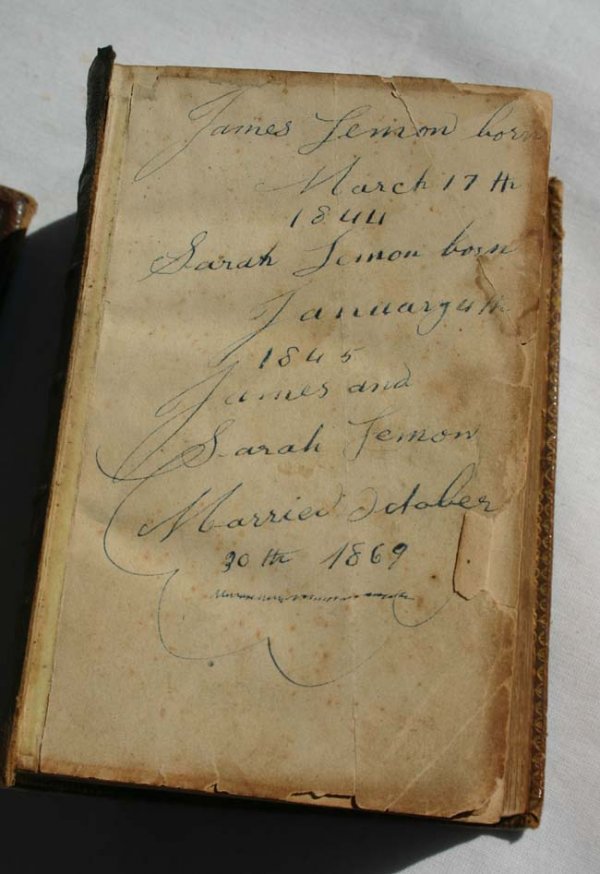 James Lemon born
March 17 th
1844
Sarah Lemon born
January 4 th
1845
James and
Sarah Lemon
Married October
30 th 1869